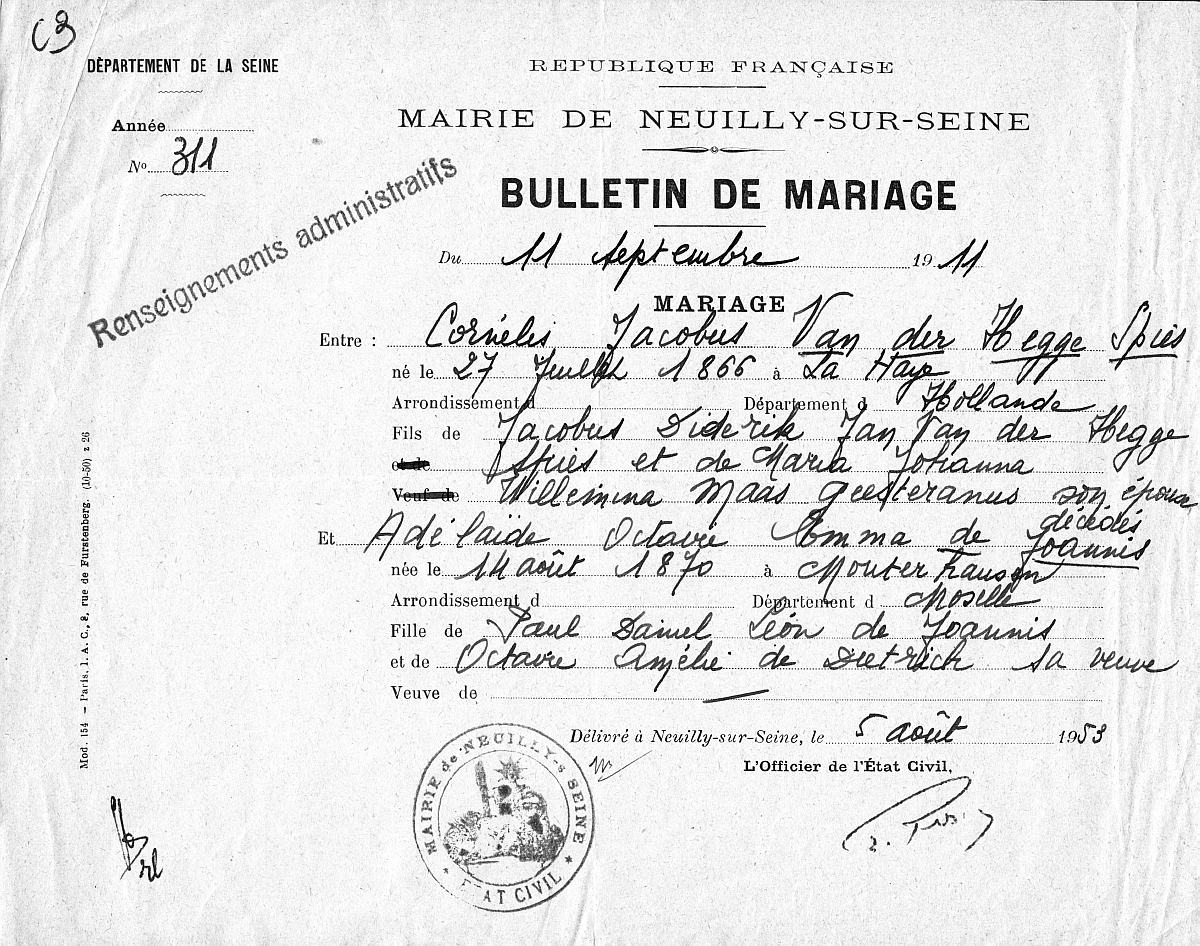 C3
DÉPARTEMENT DE LA SEINE
Année
No 311
Renseignements administratifs
REPUBLIQUE FRANÇAISE
MAIRIE DE NEUILLY-SUR-SEINE
BULLETIN DE MARIAGE
Du 11 septembre 1911
MARIAGE
Entre : Cornelis Jacobus Van der Hegge Spies
né le 27 Juillet 1866 à La Haye
Arrondissement d Département d Hollande
Fils de Jacobus Diderik Jan Van der Hegge
et de Spies et de Maria Johanna
Veuf de Willemina Maas Geesteranus son épouse
décédés
Et Adélaïde Octavie Emma de Joannis
née le 14 août 1870 à Mouterhausen
Arrondissement d Département d Moselle
Fille de Paul Daniel Léon de Joannis
et de Octavie Amélie de Dietrich sa veuve
Veuve de —
Délivré à Neuilly-sur-Seine, le 5 août 1953
L'Officier de l'État Civil,
MAIRIE de NEUILLY-s SEINE
* ETAT CIVIL *
Mod. 154 – Paris. I. A. C., 8, rue de Furstenberg. (10-50) z 26